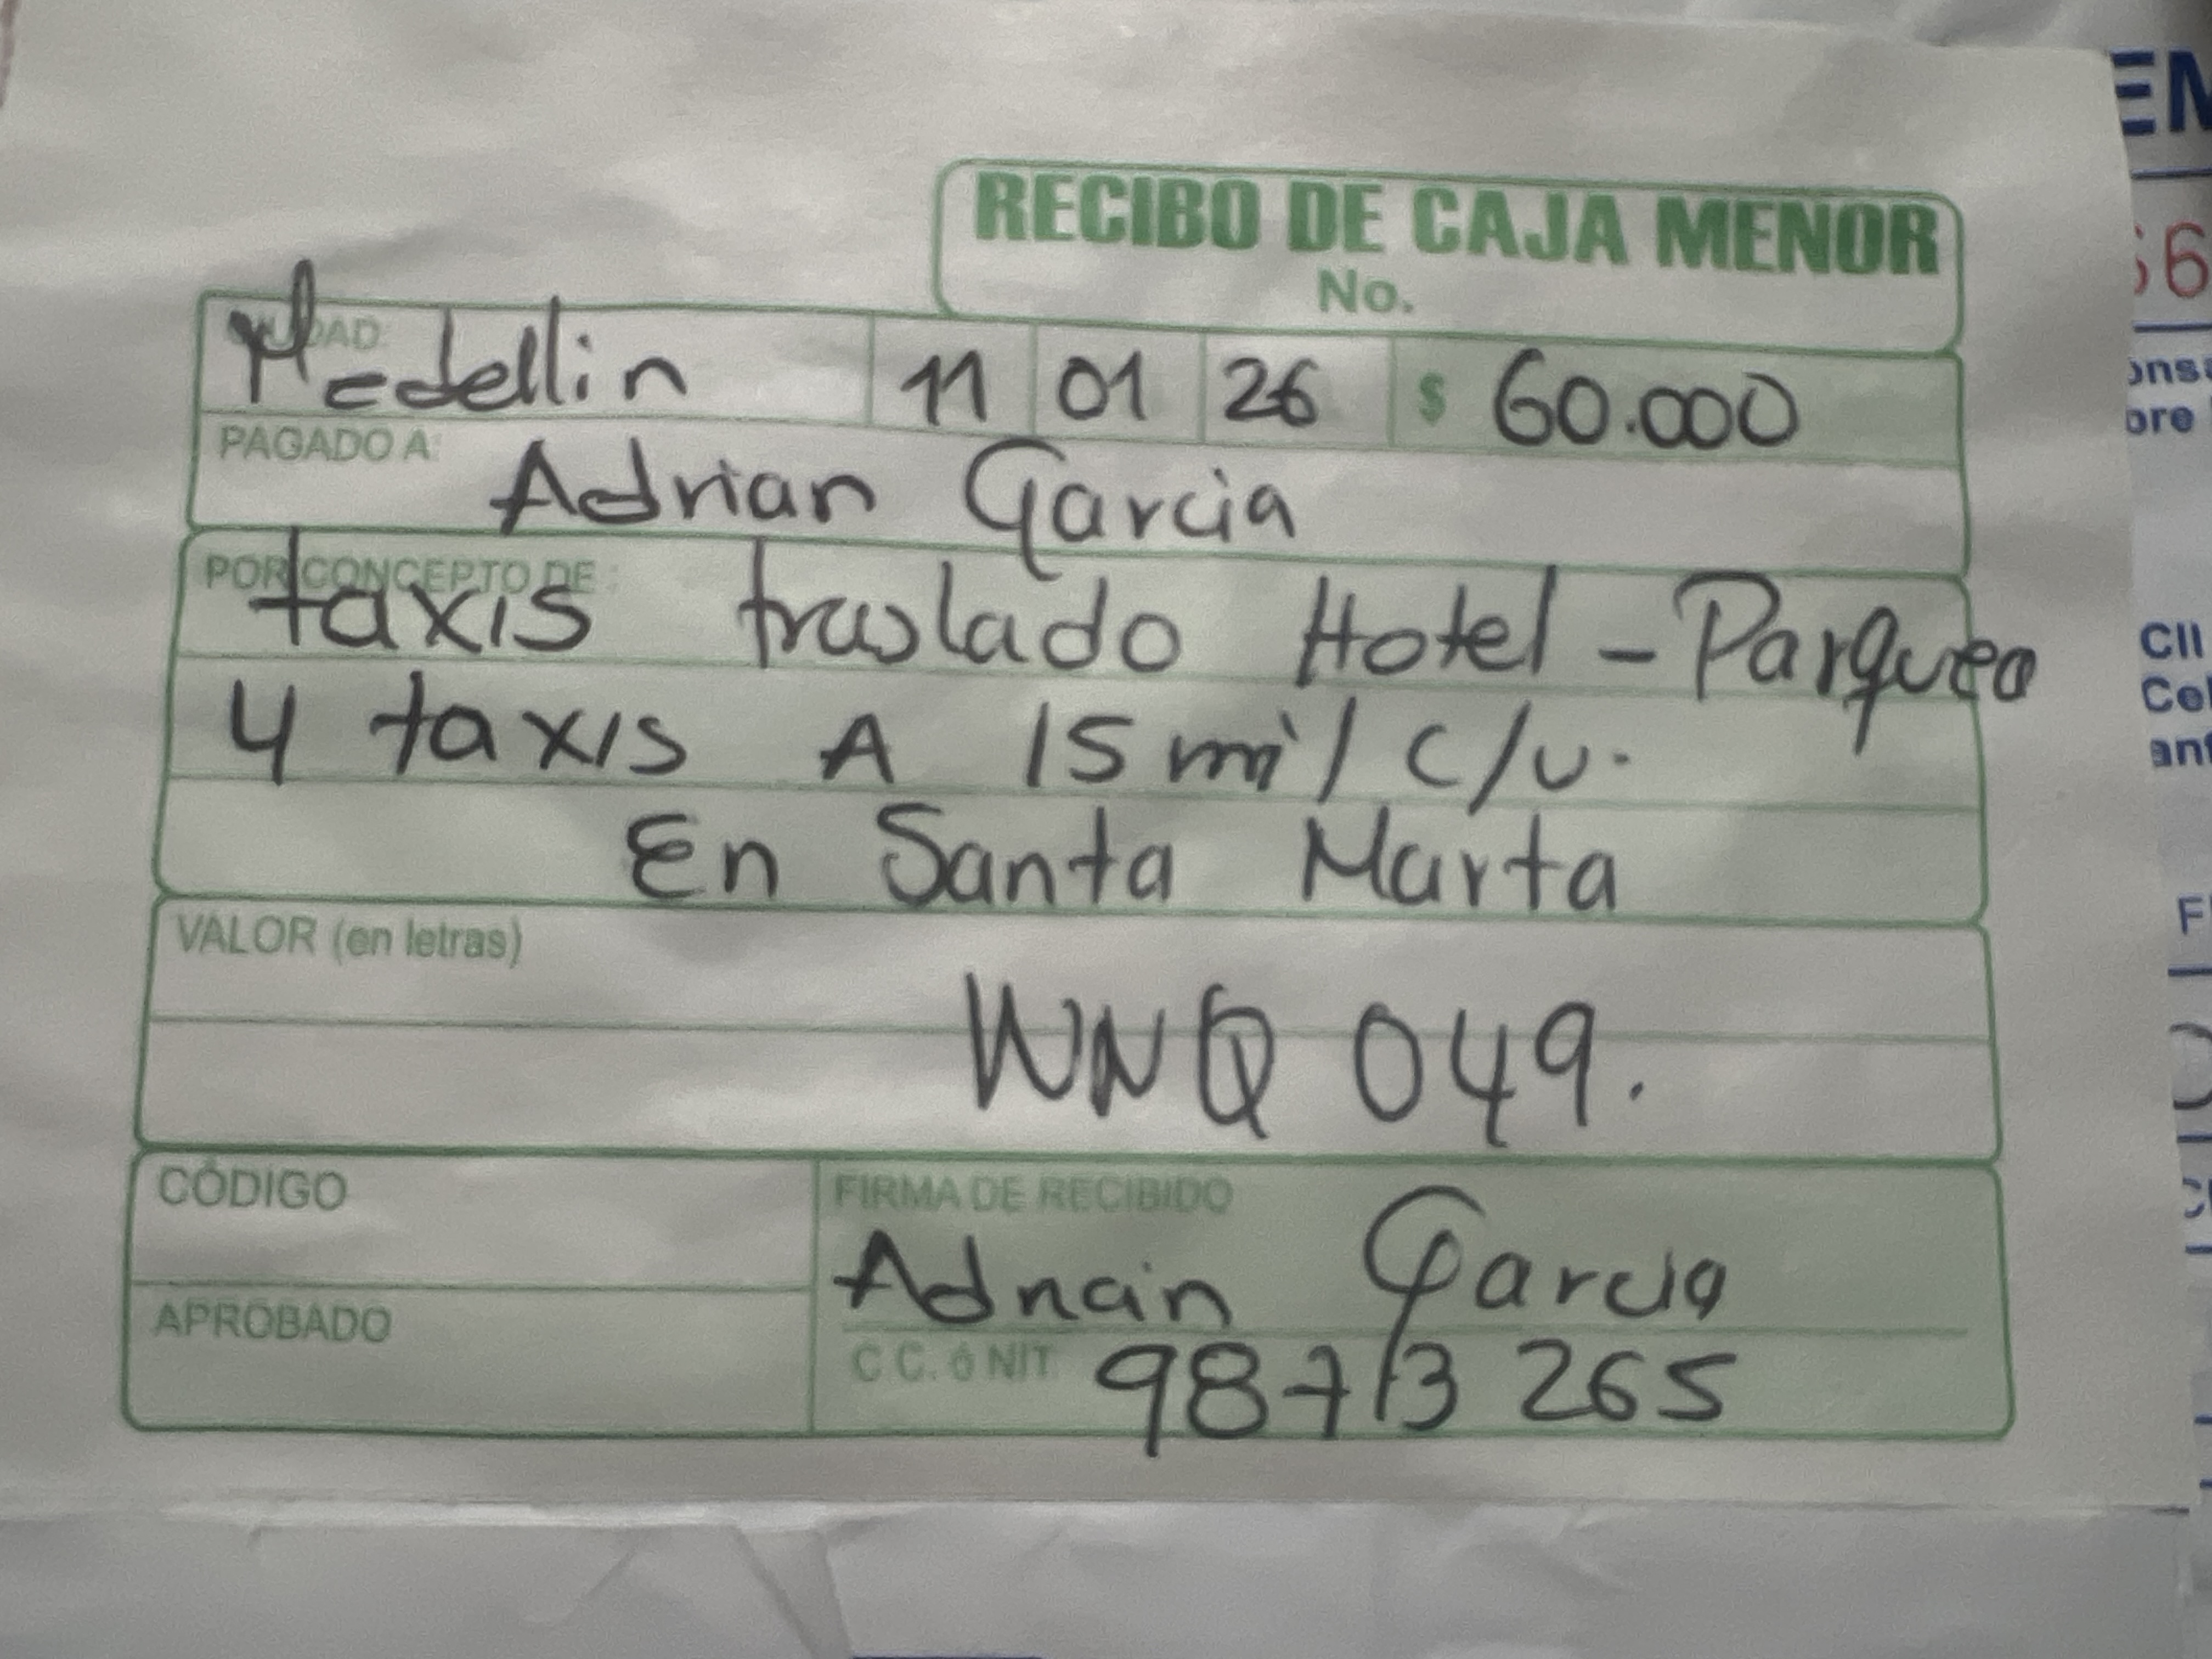 RECIBO DE CAJA MENOR
No.
CIUDAD
Medellin 11 01 26 $ 60.000
PAGADO A:
Adrian Garcia
POR CONCEPTO DE:
taxis traslado Hotel - Parqueo
4 taxis A 15 mil c/u.
En Santa Marta
VALOR (en letras)
WNQ 049.
CÓDIGO
FIRMA DE RECIBIDO
Adrian Garcia
APROBADO
C.C. ó NIT. 98713 265
EM
66
Cll
Cel